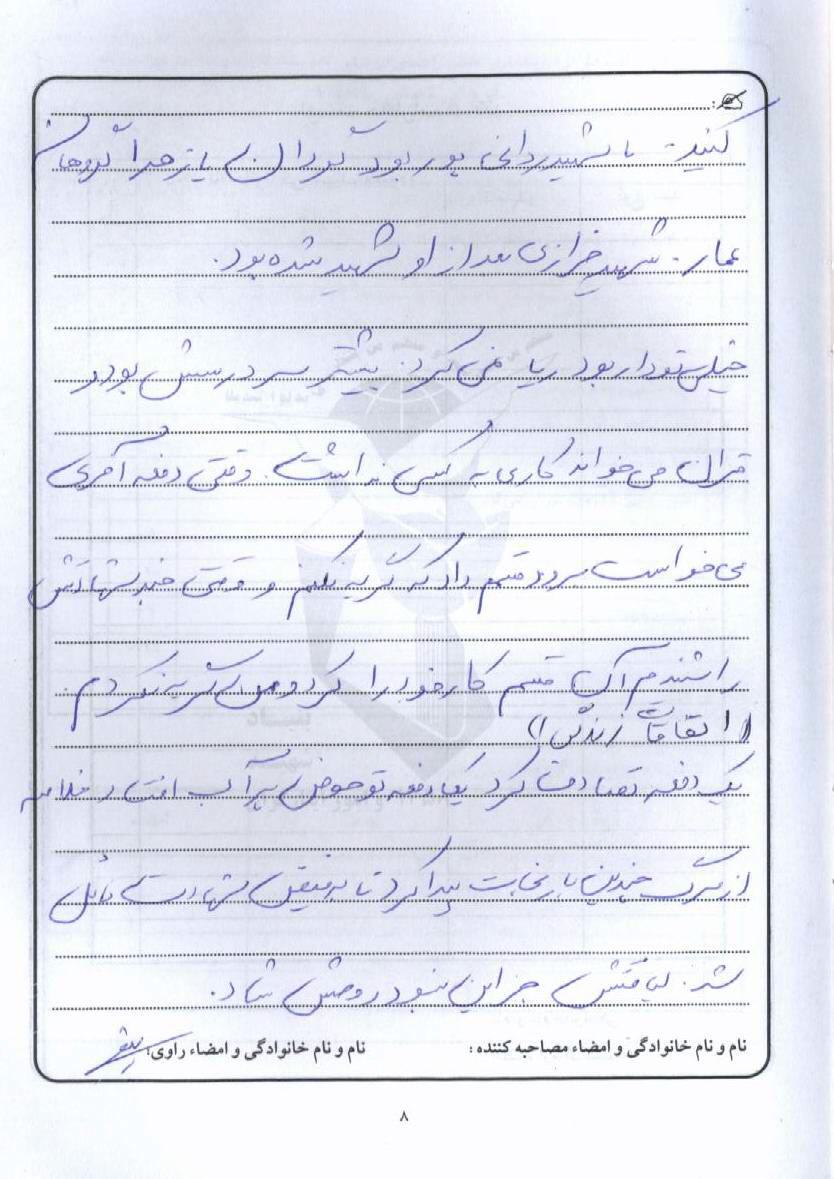 کنید. با شهید ردانی پور بود گردان یا زهرا گروهان
عمار. شهید خرازی بعد از او شهید شده بود.
خیلی تودار بود ریا نمی کرد. بیشتر سر درسش بود و
قرآن می خواند کاری به کسی نداشت. وقتی دفعه آخری
می خواست برود قسم داد که گریه نکنم و وقتی خبر شهادتش
را شنیدم آن قسم کار خود را کرد و من گریه نکردم.
((اتفاقات زندگی))
یک دفعه تصادف کرد یک دفعه تو حوض پر آب افتاد خلاصه
از مرگ چندین بار نجات پیدا کرد تا به فیض شهادت نائل
شد. لیاقتش جز این نبود روحش شاد.
نام و نام خانوادگی و امضاء مصاحبه کننده : نام و نام خانوادگی و امضاء راوی:
۸